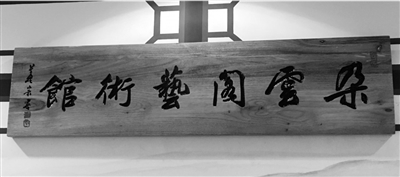 朵雲閣藝術館